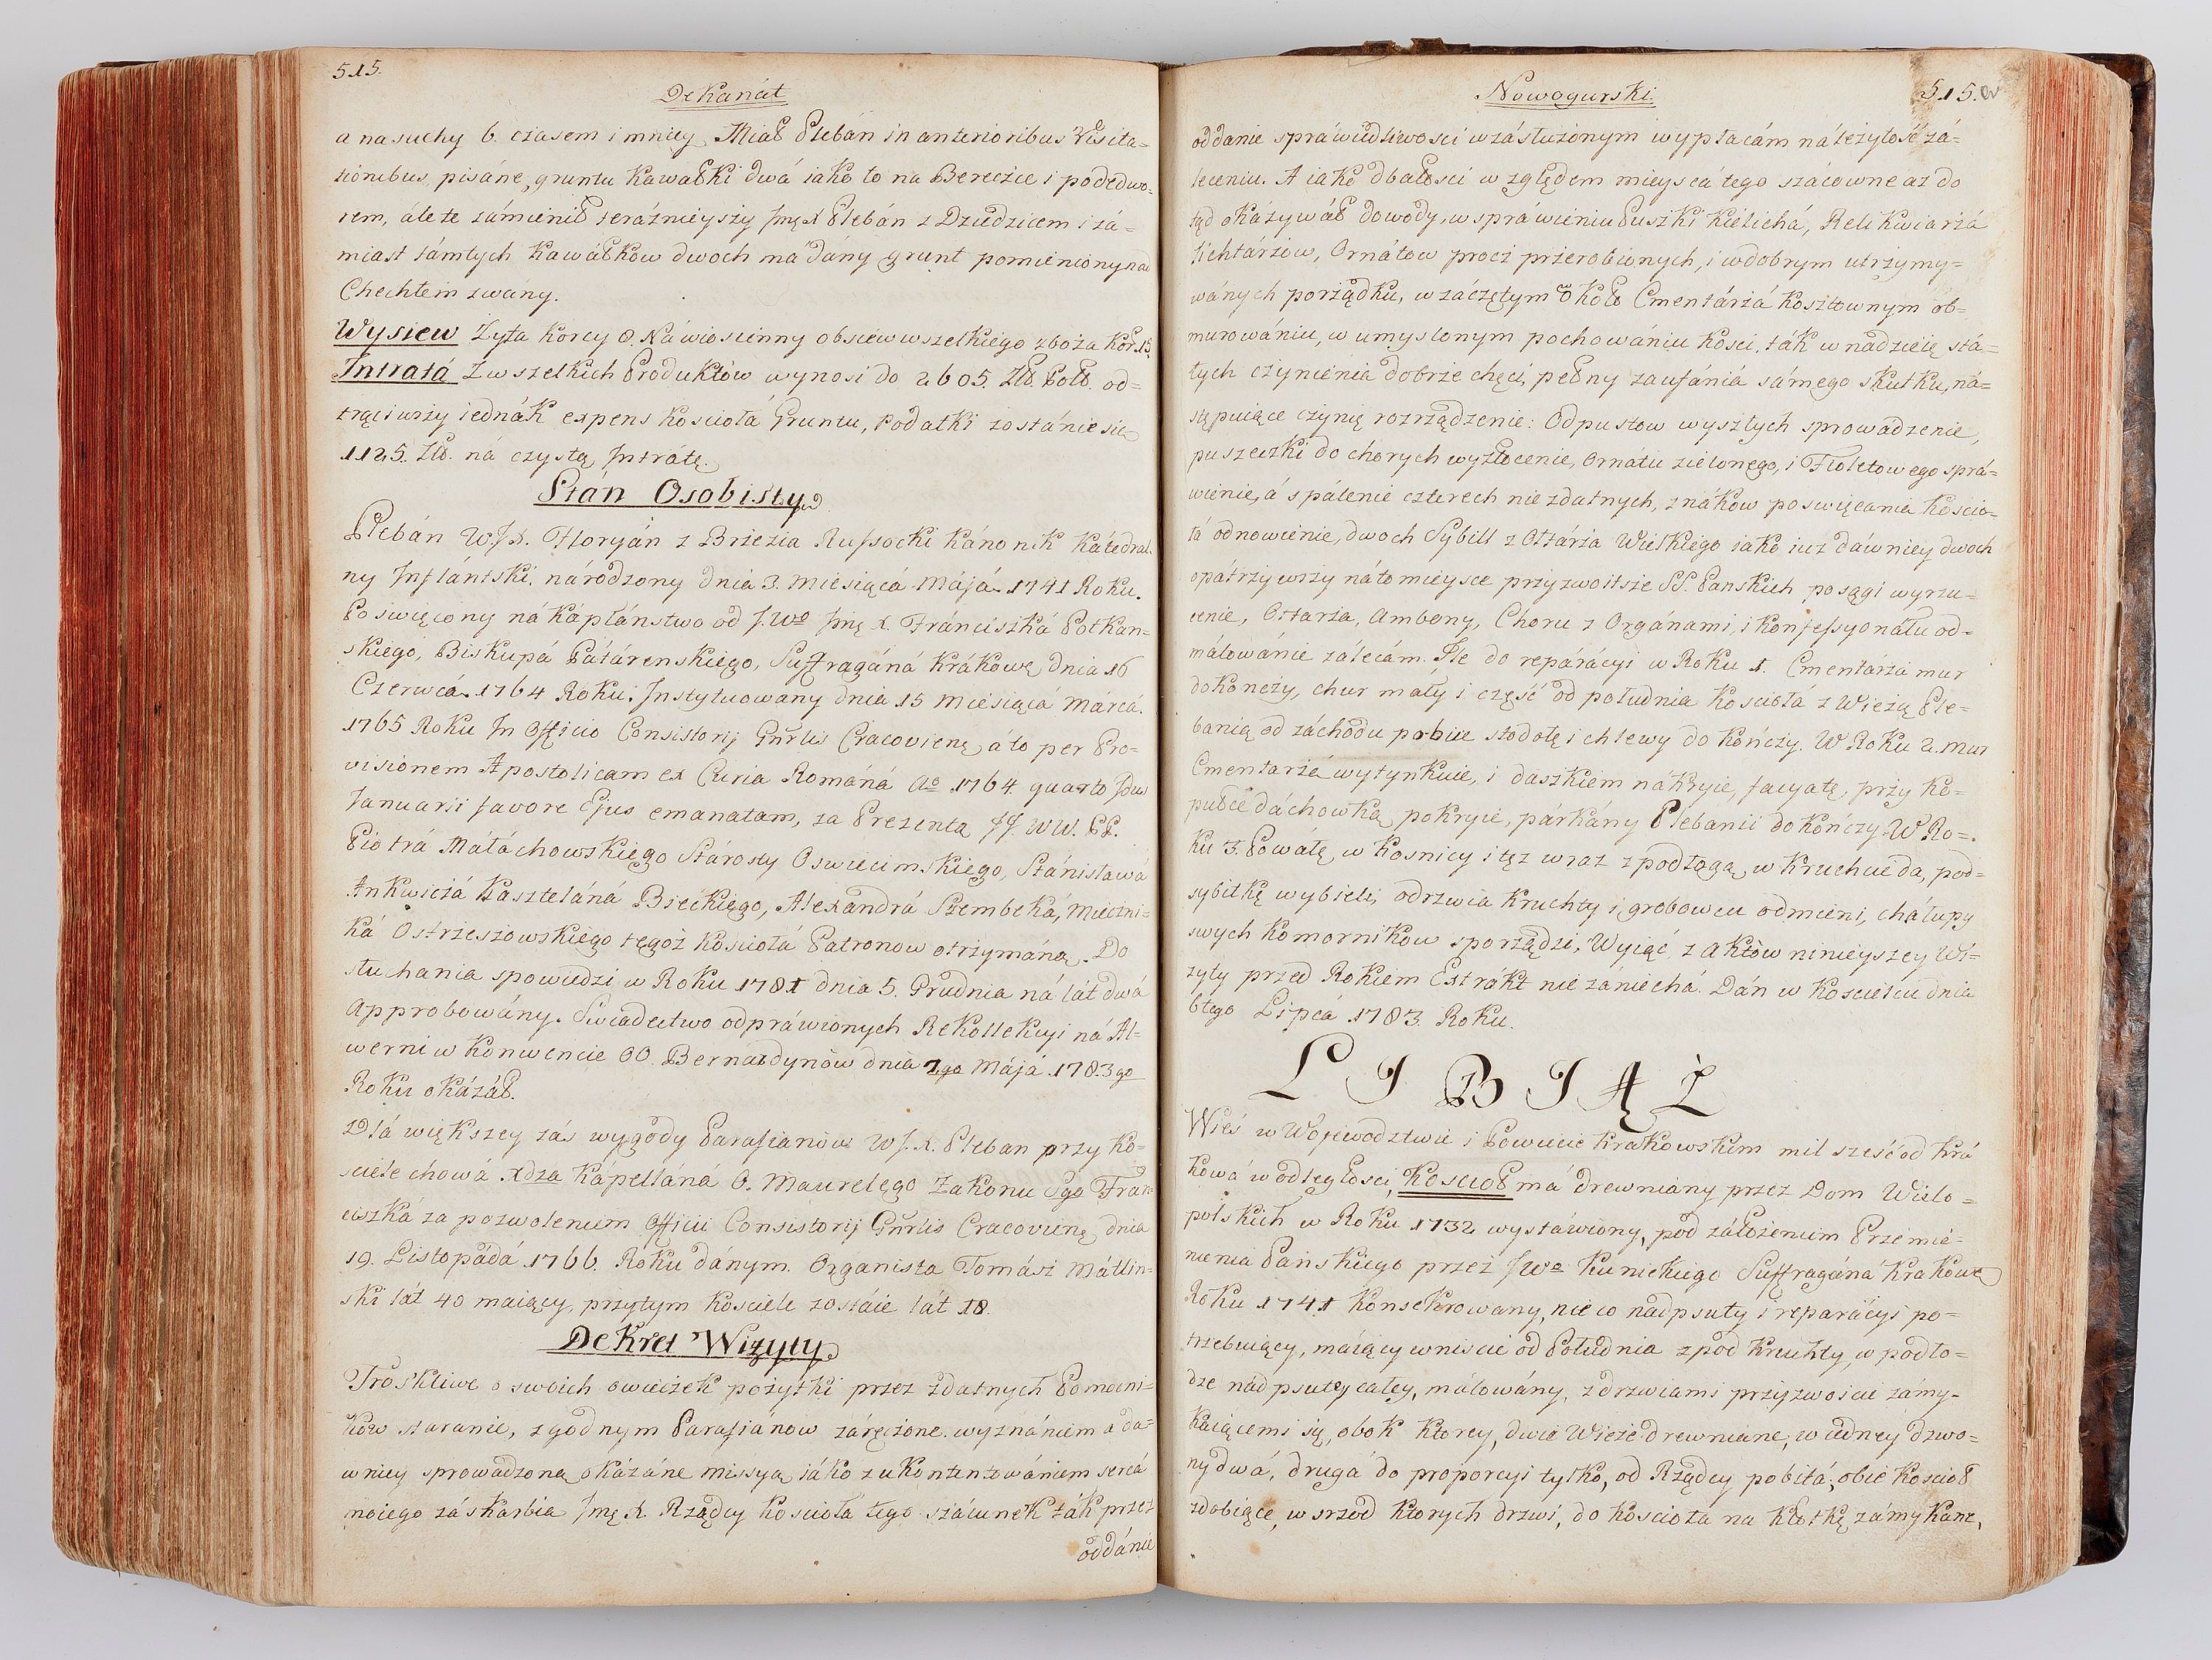 515.
Dekanát
a na suchy 6. czasem i mniey Miał Plebán in anterioribus Visita=
tionibus pisáne, gruntu Kawałki dwá iako to na Bereżce i podedwo=
rem, ále te zámienił teráznieyszy Jmć X Plebán z Dziedzicem i zá=
miast támtych Kawáłków dwoch má dány grunt pomieniony nad
Chechłem zwány.
Wysiew Zyta korcy 8. Ná wiosienny obsiew wszelkiego zboża Kor. 15.
Intratá Z wszelkich Produktów wynosi do 2605. Zł. Pol. od=
trąciwszy iednák expens Kościołá Gruntu, Podatki zostánie się
1125. Zł. ná czystą Intrátę.
Stán Osobisty
Plebán WJX. Floryán z Brzezia Russocki Kánonik Kátedral=
ny Inflántski, národzony dnia 3. Miesiącá Májá 1741 Roku.
Poswięcony ná Kápłáństwo od J.Wo Jmć X. Franciszká Potkań=
skiego, Biskupá Pátáreńskiego, Suffragáná Krákowę dnia 16
Czerwcá 1764 Roku. Instytuowany dnia 15 Miesiącá Márcá
1765 Roku In Officio Consistorij Gnrlis Cracovienę á to per Pro=
visionem Apostolicam ex Curia Románá Ao 1764 quarto Idus
Januarii favore Ejus emanatam, za Prezentą JJ. WW. PP.
Piotrá Máłáchowskiego Stárosty Oswiecimskiego, Stánisławá
Ankwiczá Kasztelána Bieckiego, Alexandrá Szembeká, Mieczni=
ká Ostrzeszowskiego tęgoż Kościołá Patronow otrzymáną. Do
słuchania spowiedzi w Roku 1781 dnia 5. Grudnia ná lát dwá
Approbowány. Swiadectwo odpráwionych Rekollekcyi ná Al=
werni w Konwencie OO. Bernardynów dnia 7go Májá 1783go
Roku okázáł.
Dlá większey zás wygody Parafianów WJ.X. Pleban przy Ko=
sciele chowá Xdza Kápellána O. Maurelego Zakonu Sgo Fran=
ciszká za pozwoleniem Officii Consistorij Gnrlis Cracovienę dnia
19. Listopádá 1766. Roku dánym. Organista Tomász Mátliń=
ski lát 40 maiący, przytym Kościele zostáie lát 18.
Dekret Wizyty
Troskliwe o swoich owieczek pożytki przez zdatnych Pomocni=
ków staranie, zgodnym Parafiánow záręczone wyznániem a da=
wniey sprowadzoną okázáne missyą iáko z ukontentowániem sercá
moiego záskarbia Jmć X. Rządcy Kościoła tego szácunek ták przez
oddánie
Nowogurski.
515.
oddanie spráwiedliwosci w zásłużonym wypłacám náleżytość zá=
leceniu. A iako dbałosci względem mieyscá tego szácowne aż do
tąd okázywáł dowody, w spráwieniu Puszki Kielichá, Relikwiarzá
lichtárzow, Ornátow procz przerobionych, i w dobrym utrzymy=
wánych porządku, w záczętym około Cmentárzá kosztownym ob=
murowániu, w umyslonym pochowániu kości, ták w nadzieię stá=
łych czynienia dobrze chęci, pełny zaufánia sámego skutku, ná=
stępuiące czynię rozrządzenie: Odpustow wyszłych sprowadzenie,
puszeczki do chorych wyzłocenie, Ornatu zielonego, i Fioletowego sprá=
wienie, á spálenie czterech niezdatnych, znáków poswięcania Kościo=
łá odnowienie, dwoch Sybill z Ołtárza Wielkiego iako iuż dáwniey dwoch
opátrzywszy náto mieysce przyzwoitsze SS. Panskich posągi wyrzu=
cenie, Ołtarza, Ambony, Choru z Orgánami, i Konfessyonału od=
málowánie zálecám. Ile do repárácyi w Roku 1. Cmentarza mur
dokończy, chur mały i część od południa Kościołá z Wieżą Ple=
banią od záchodu pobiie stodołę i chlewy dokończy. W Roku 2. mur
Cmentarza wytynkuie, i daszkiem nákryie, facyatę, przy Ko=
pułce dáchowką pokryie, párkány Plebanii dokończy. W Ro=
ku 3. Powałę w Kosnicy i też wraz z podłogą w Kruchcie da, pod=
sybitkę wybieli, odrzwia Kruchty i grobowcu odmieni, chałupy
swych Komorników sporządzi, Wyiąć z Aktów ninieyszey Wi=
zyty przed Rokiem Extrákt nie zániechá. Dán w Kościelcu dnia
6tego Lipcá 1783. Roku.
LIBIĄŻ
Wieś w Wojewodztwie i Powiecie Krakowskim mil sześć od Krá
kowá w odległości, Kościoł má drewniány przez Dom Wielo=
polskich w Roku 1732 wystáwiony, pod záłożeniem Przemie=
nienia Páńskiego przez JWo Kunickiego Suffragána Krakowę
Roku 1741 Konsekrowany, nieco nadpsuty i reparácyi po=
trzebuiący, máiący wniscie od Południa z pod Kruchty, w podło=
dze nádpsutey całey, málowány, z drzwiami przyzwoicie zámy=
kaiącemi się, obok Ktorey, dwie Wieże drewniane, w iedney dzwo=
ny dwá, drugá do proporcyi tylko, od Rządcy pobitá; obie Kościoł
zdobiące, w srzod Ktorych drzwi, do Kościoła na Kłotkę zámykane,